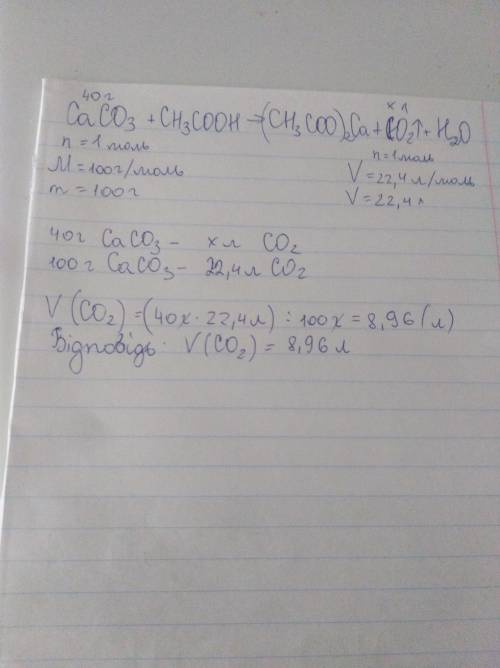 40г х л
CaCO₃ + CH₃COOH → (CH₃COO)₂Ca + CO₂↑ + H₂O
n = 1 моль n = 1 моль
M = 100г/моль V = 22,4 л/моль
m = 100г V = 22,4 л
40г CaCO₃ – х л CO₂
100г CaCO₃ – 22,4л CO₂
V(CO₂) = (40х · 22,4л) : 100х = 8,96(л)
Відповідь: V(CO₂) = 8,96 л